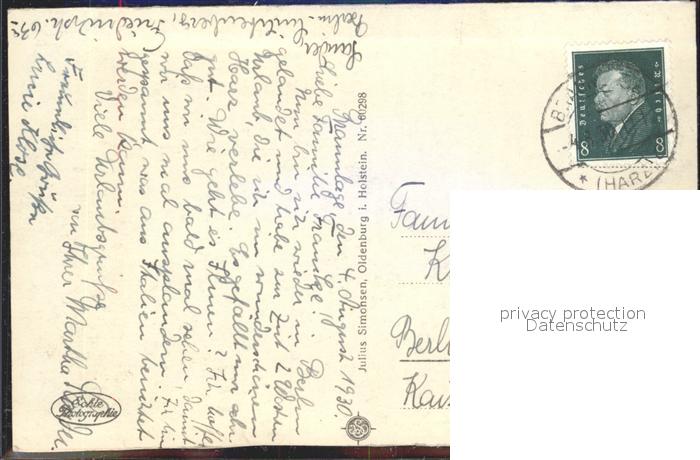 Braunlage, den 4. August 1930.
Liebe Familie
Nun bin ich wieder in Berlin
gelandet und habe zur Zeit 2 Wochen
Urlaub, die ich im wunderschönen
Harz verlebe. Es gefällt mir sehr
gut. Wie geht es Ihnen? Ich hoffe,
daß wir uns bald mal sehen, damit
wir uns mal ausplaudern. Ich bin
gespannt was aus Italien berichtet
werden kann.
Viele Urlaubsgrüße
von Ihrer Martha
Freundl. Grüße
Lucie Klose
Berlin-Lichtenberg, Friedrichstr. 63
Julius Simonsen, Oldenburg i. Holstein. Nr. 60298
Echte
Photographie
Deutsches Reich
8 8
(HARZ)
Fam
K
Berli
Kais
privacy protection
Datenschutz